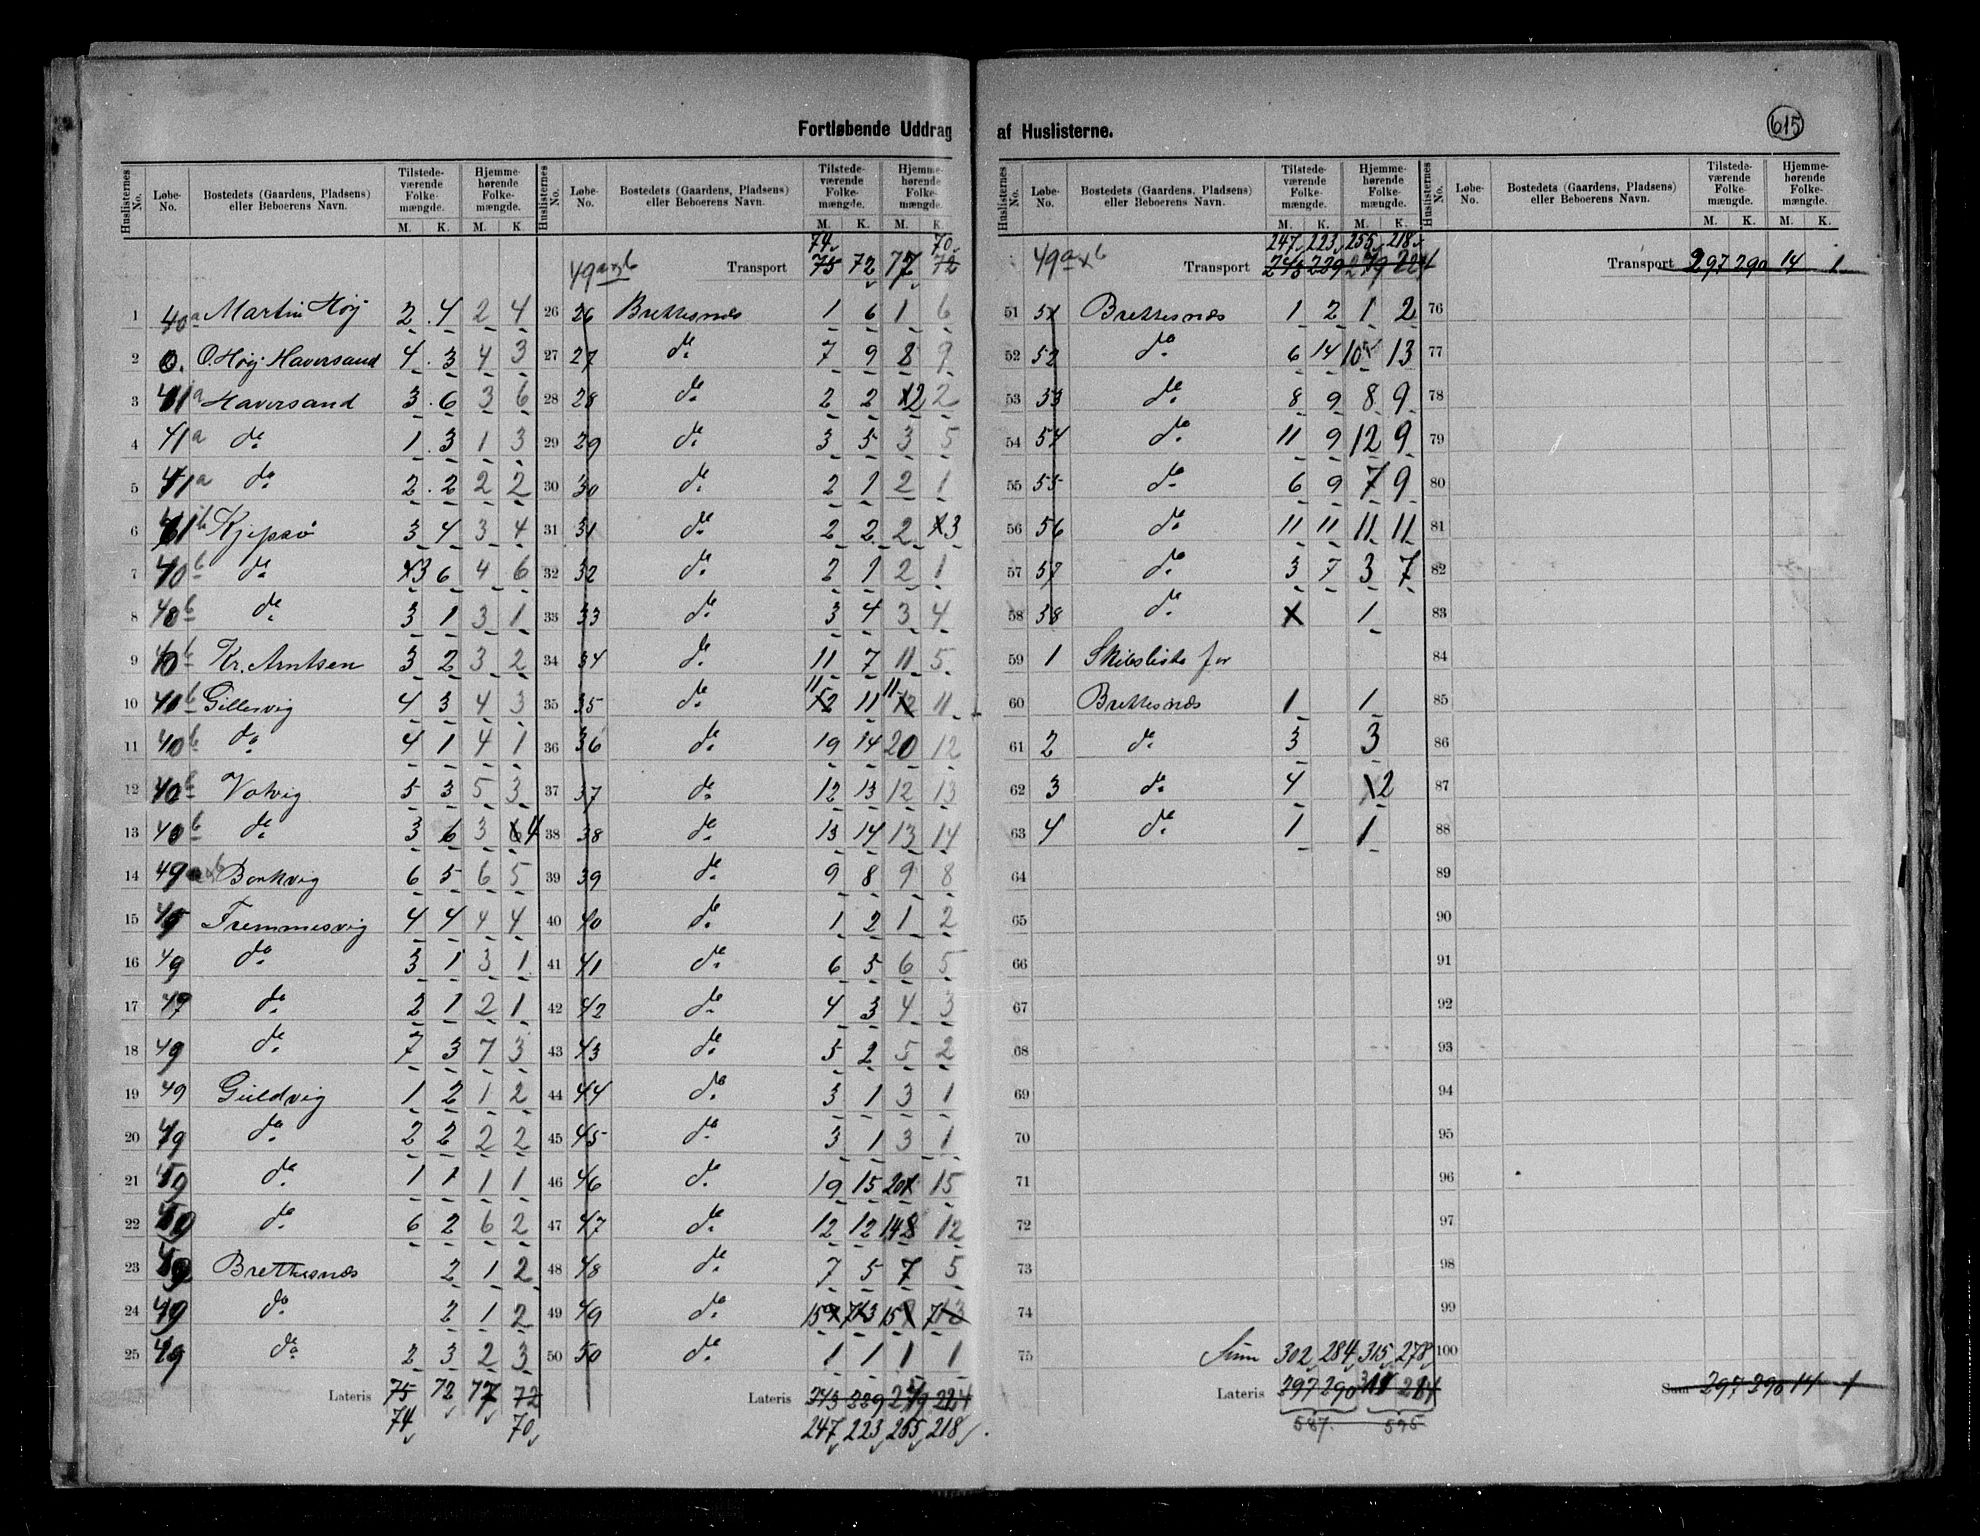 Fortløbende Uddrag af Huslisterne.
615
Huslisternes No. Løbe-No. Bostedets (Gaardens, Pladsens) eller Beboerens Navn. Tilstedeværende Folkemængde. M. K. Hjemmehørende Folkemængde. M. K.
1 40a Martin Høj 2 4 2 4
2 O. Høj Haversand 4 3 4 3
3 41a Haversand 3 6 3 6
4 41a do 1 3 1 3
5 41a do 2 2 2 2
6 41b Kjepsø 3 4 3 4
7 40b do 3 6 4 6
8 40b do 3 1 3 1
9 40b Kr. Arntsen 3 2 3 2
10 40b Gillesvig 4 3 4 3
11 40b do 4 1 4 1
12 40b Votvig 5 3 5 3
13 40b do 3 6 3 4
14 49 Borkvig 6 5 6 5
15 Fremmesvig 4 4 4 4
16 49 do 3 1 3 1
17 49 do 2 1 2 1
18 49 do 7 3 7 3
19 49 Guldvig 1 2 1 2
20 49 do 2 2 2 2
21 49 do 1 1 1 1
22 do 6 2 6 2
23 Brettesnæs 2 1 2
24 49 do 2 1 2
25 49 do 2 3 2 3
Lateris 75 72 77 72
74 70
Huslisternes No. Løbe-No. Bostedets (Gaardens, Pladsens) eller Beboerens Navn. Tilstedeværende Folkemængde. M. K. Hjemmehørende Folkemængde. M. K.
74 70
49a+b Transport 75 72 77 72
26 26 Brettesnæs 1 6 1 6
27 27 do 7 9 8 9
28 28 do 2 2 2 2
29 29 do 3 5 3 5
30 30 do 2 1 2 1
31 31 do 2 2 2 3
32 32 do 2 1 2 1
33 33 do 3 4 3 4
34 34 do 11 7 11 5
11 11
35 35 do 12 11 12 11
36 36 do 19 14 20 12
37 37 do 12 13 12 13
38 38 do 13 14 13 14
39 39 do 9 8 9 8
40 40 do 1 2 1 2
41 41 do 6 5 6 5
42 42 do 4 3 4 3
43 43 do 5 2 5 2
44 44 do 3 1 3 1
45 45 do 3 1 3 1
46 46 do 19 15 20 15
47 47 do 12 12 14 12
48 48 do 7 5 7 5
49 49 do 15 7 15 7
50 50 do 1 1 1 1
Lateris 243 229 229 224
247 223 255 218
Huslisternes No. Løbe-No. Bostedets (Gaardens, Pladsens) eller Beboerens Navn. Tilstedeværende Folkemængde. M. K. Hjemmehørende Folkemængde. M. K.
247 223 255 218
49a+b Transport 243 229 279 224
51 51 Brettesnæs 1 2 1 2
52 52 do 6 14 10 13
53 53 do 8 9 8 9
54 54 do 11 9 12 9
55 55 do 6 9 7 9
56 56 do 11 11 11 11
57 57 do 3 7 3 7
58 58 do 1
59 1 Skibsliste for
60 Brettesnæs 1 1
61 2 do 3 3
62 3 do 4 2
63 4 do 1 1
64
65
66
67
68
69
70
71
72
73
74
75 Sum 302 284 315 278
Lateris 297 290 284
587. 595
Huslisternes No. Løbe-No. Bostedets (Gaardens, Pladsens) eller Beboerens Navn. Tilstedeværende Folkemængde. M. K. Hjemmehørende Folkemængde. M. K.
Transport 297 290 14 1
76
77
78
79
80
81
82
83
84
85
86
87
88
89
90
91
92
93
94
95
96
97
98
99
100
Sum 297 290 14 1